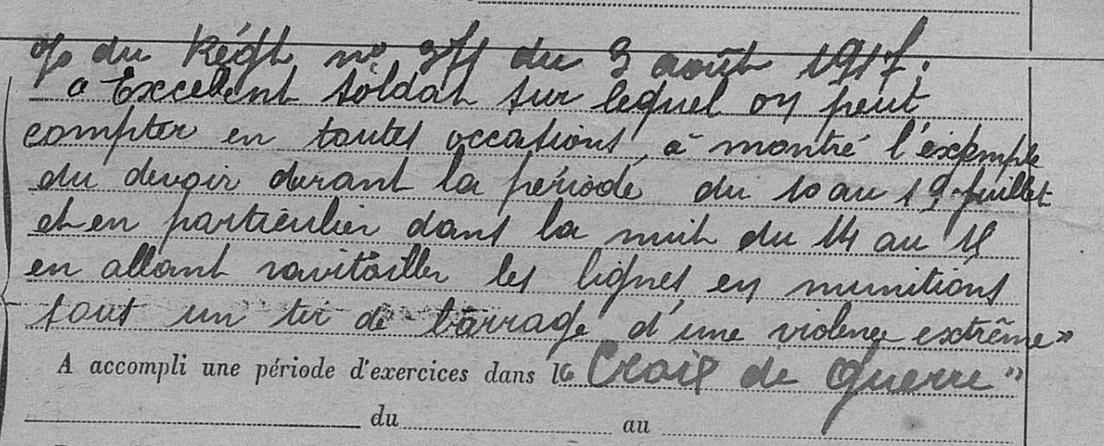 % du Régt n° 371 du 3 août 1917.
" Excellent soldat sur lequel on peut
compter en toutes occasions, à montré l'exemple
du devoir durant la période du 10 au 19 juillet
et en particulier dans la nuit du 14 au 15
en allant ravitailler les lignes en munitions
sous un tir de barrage d'une violence extrême"
A accompli une période d'exercices dans la Croix de Guerre"
du au